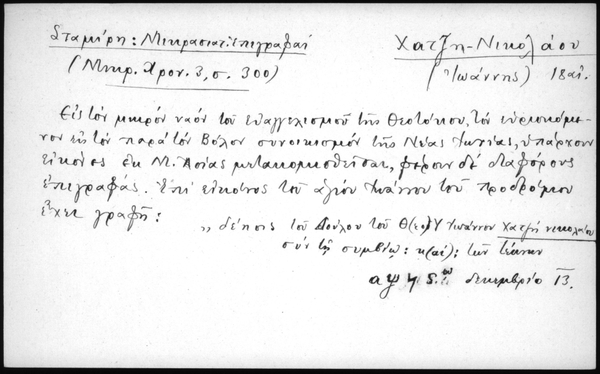 Σταμίρη: Μικρασιατ. Ἐπιγραφαί
(Μικρ. Χρον. 3, σ. 300)
Χατζη-Νικολάου
(Ἰωάννης) 18 αἰ.
Εἰς τὸν μικρὸν ναὸν τοῦ εὐαγγελισμοῦ τῆς Θεοτόκου, τὸν εὑρισκόμε-
νον εἰς τὸν παρὰ τὸν Βόλον συνοικισμὸν τῆς Νέας Ἰωνίας, ὑπάρχουν
εἰκόνες ἐκ Μ. Ἀσίας μετακομισθεῖσαι, φέρουν δὲ διαφόρους
ἐπιγραφάς. Ἐπὶ εἰκόνος τοῦ ἁγίου Ἰωάννου τοῦ Προδρόμου
ἔχει γραφῆ:
„ δέησις τοῦ δούλου τοῦ Θ(εο)Υ Ἰωάννου Χατζῆ νικολάου
σὺν τῇ συμβίῳ: κ(αὶ): τῶν τέκνων
αψ ϟ δ.ῳ δεκεμβρίο 13.